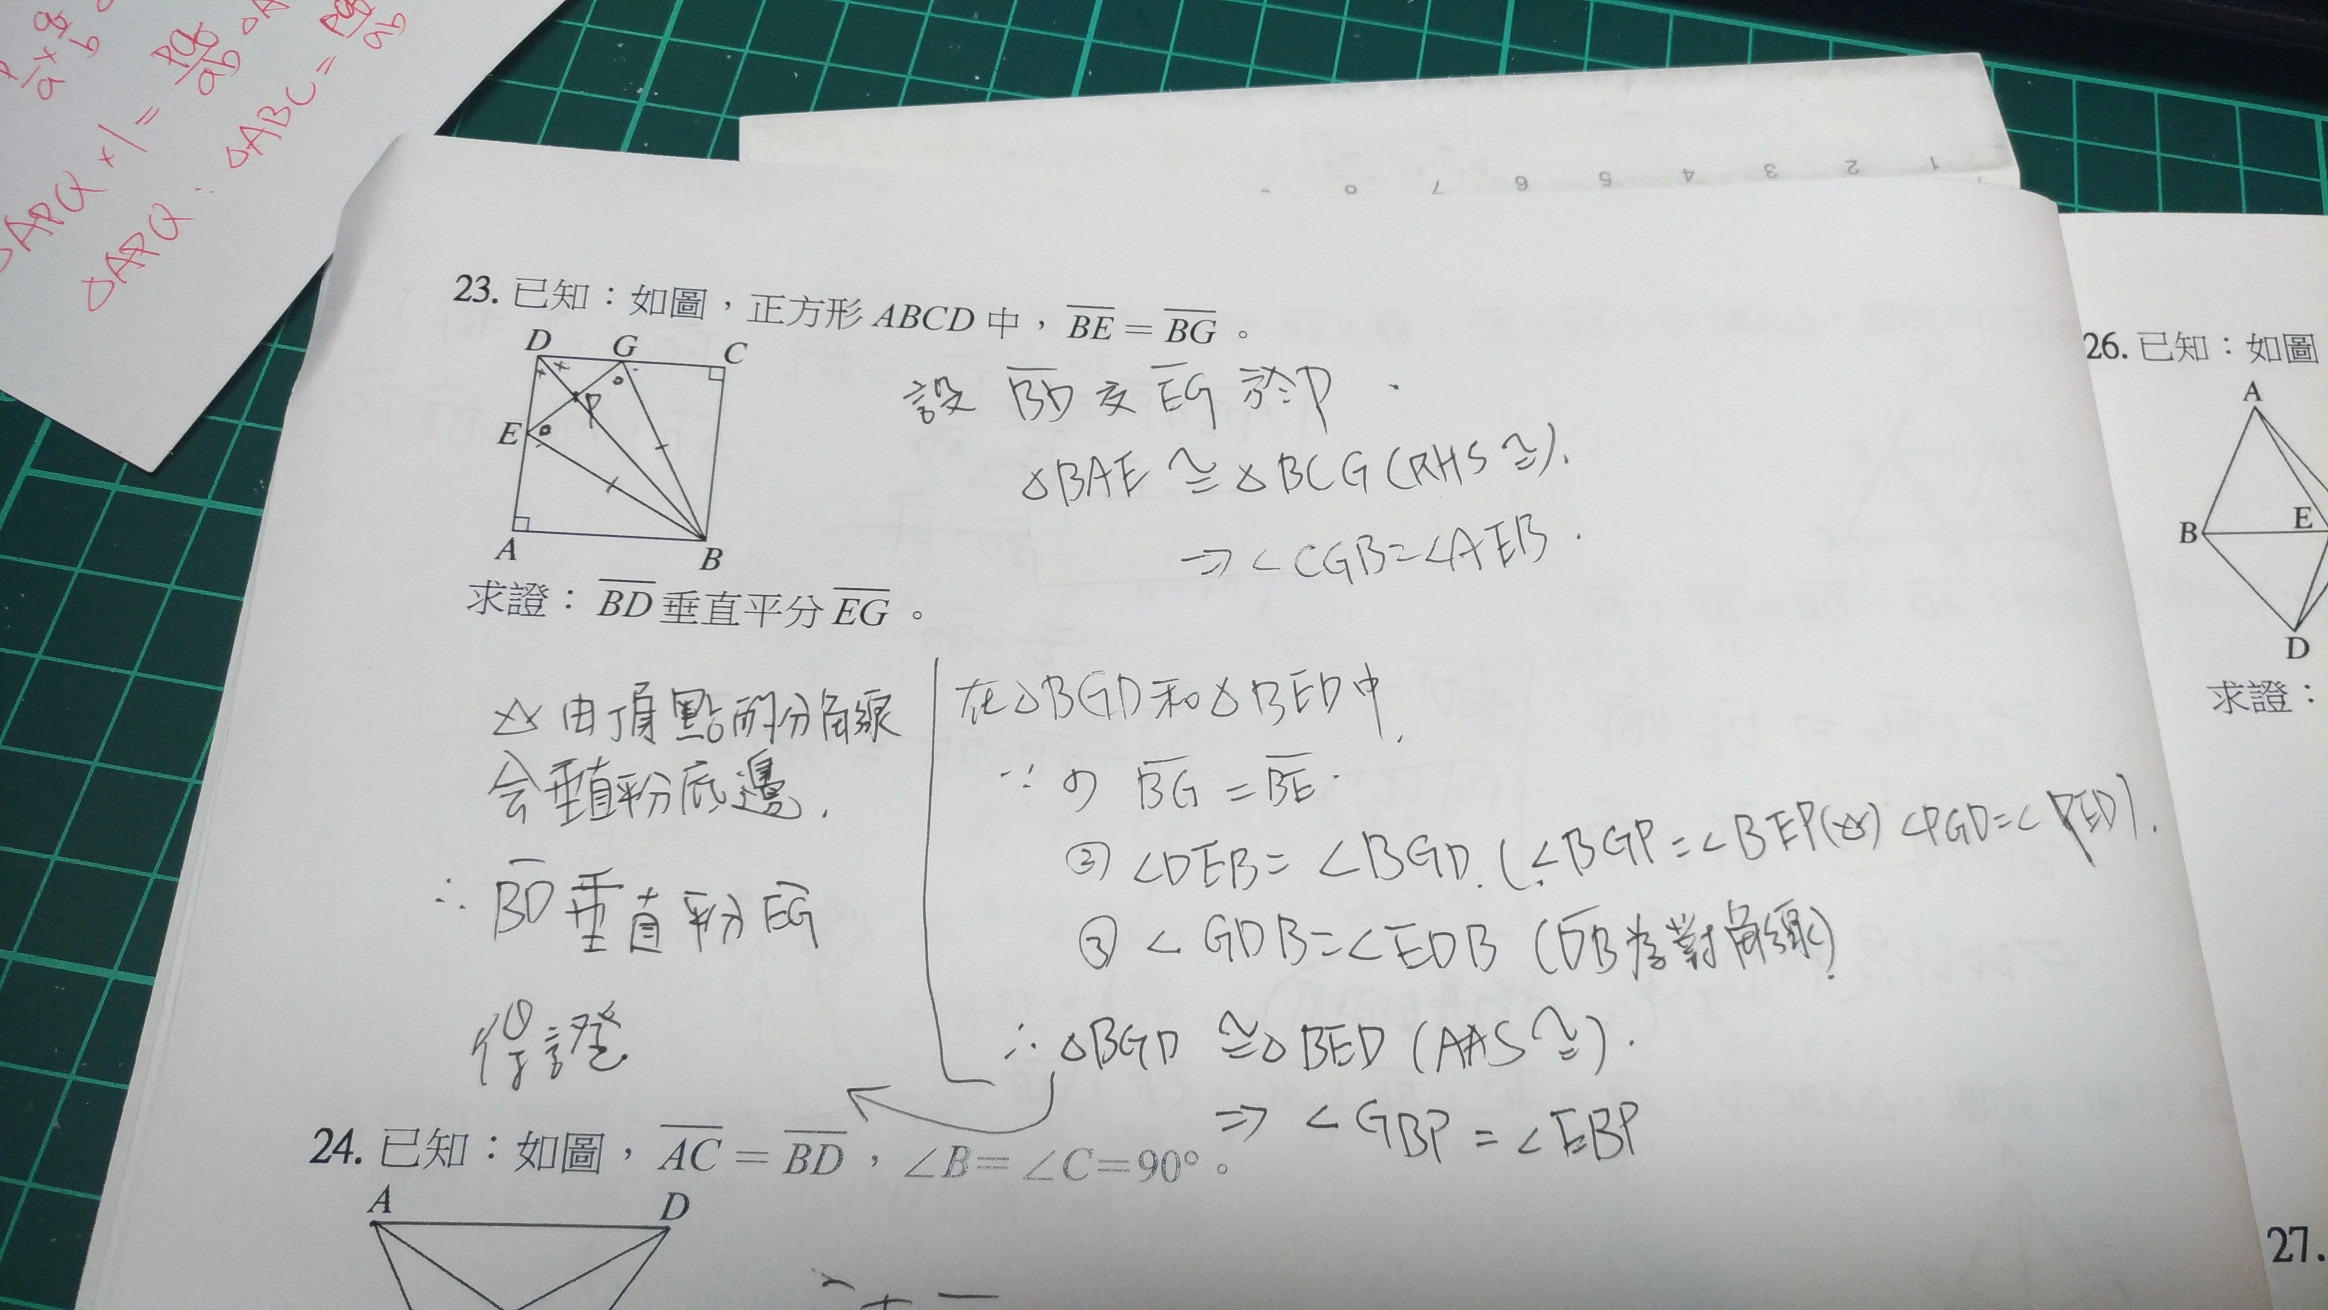 p/a × q/b
△APQ × 1 = pq/ab △A
△APQ : △ABC = pq/ab
1 2 3 4 5 6 7
23. 已知：如圖，正方形 ABCD 中，BE = BG。
D G C
P
E
A B
設 BD 交 EG 於 P.
△BAE ≅ △BCG (RHS≅).
⇒ ∠CGB = ∠AEB.
求證：BD 垂直平分 EG。
由頂點的分角線
会垂直平分底邊.
∴ BD 垂直平分 EG
得證
在△BGD和△BED中
∵ ① BG = BE.
② ∠DEB = ∠BGD. (∠BGP = ∠BEP() ∠PGD = ∠PED).
③ ∠GDB = ∠EDB (DB為對角線)
∴ △BGD ≅ △BED (AAS≅).
⇒ ∠GBP = ∠EBP
24. 已知：如圖，AC = BD，∠B = ∠C = 90°。
A D
26. 已知：如圖
A
B E
D
求證：
27.